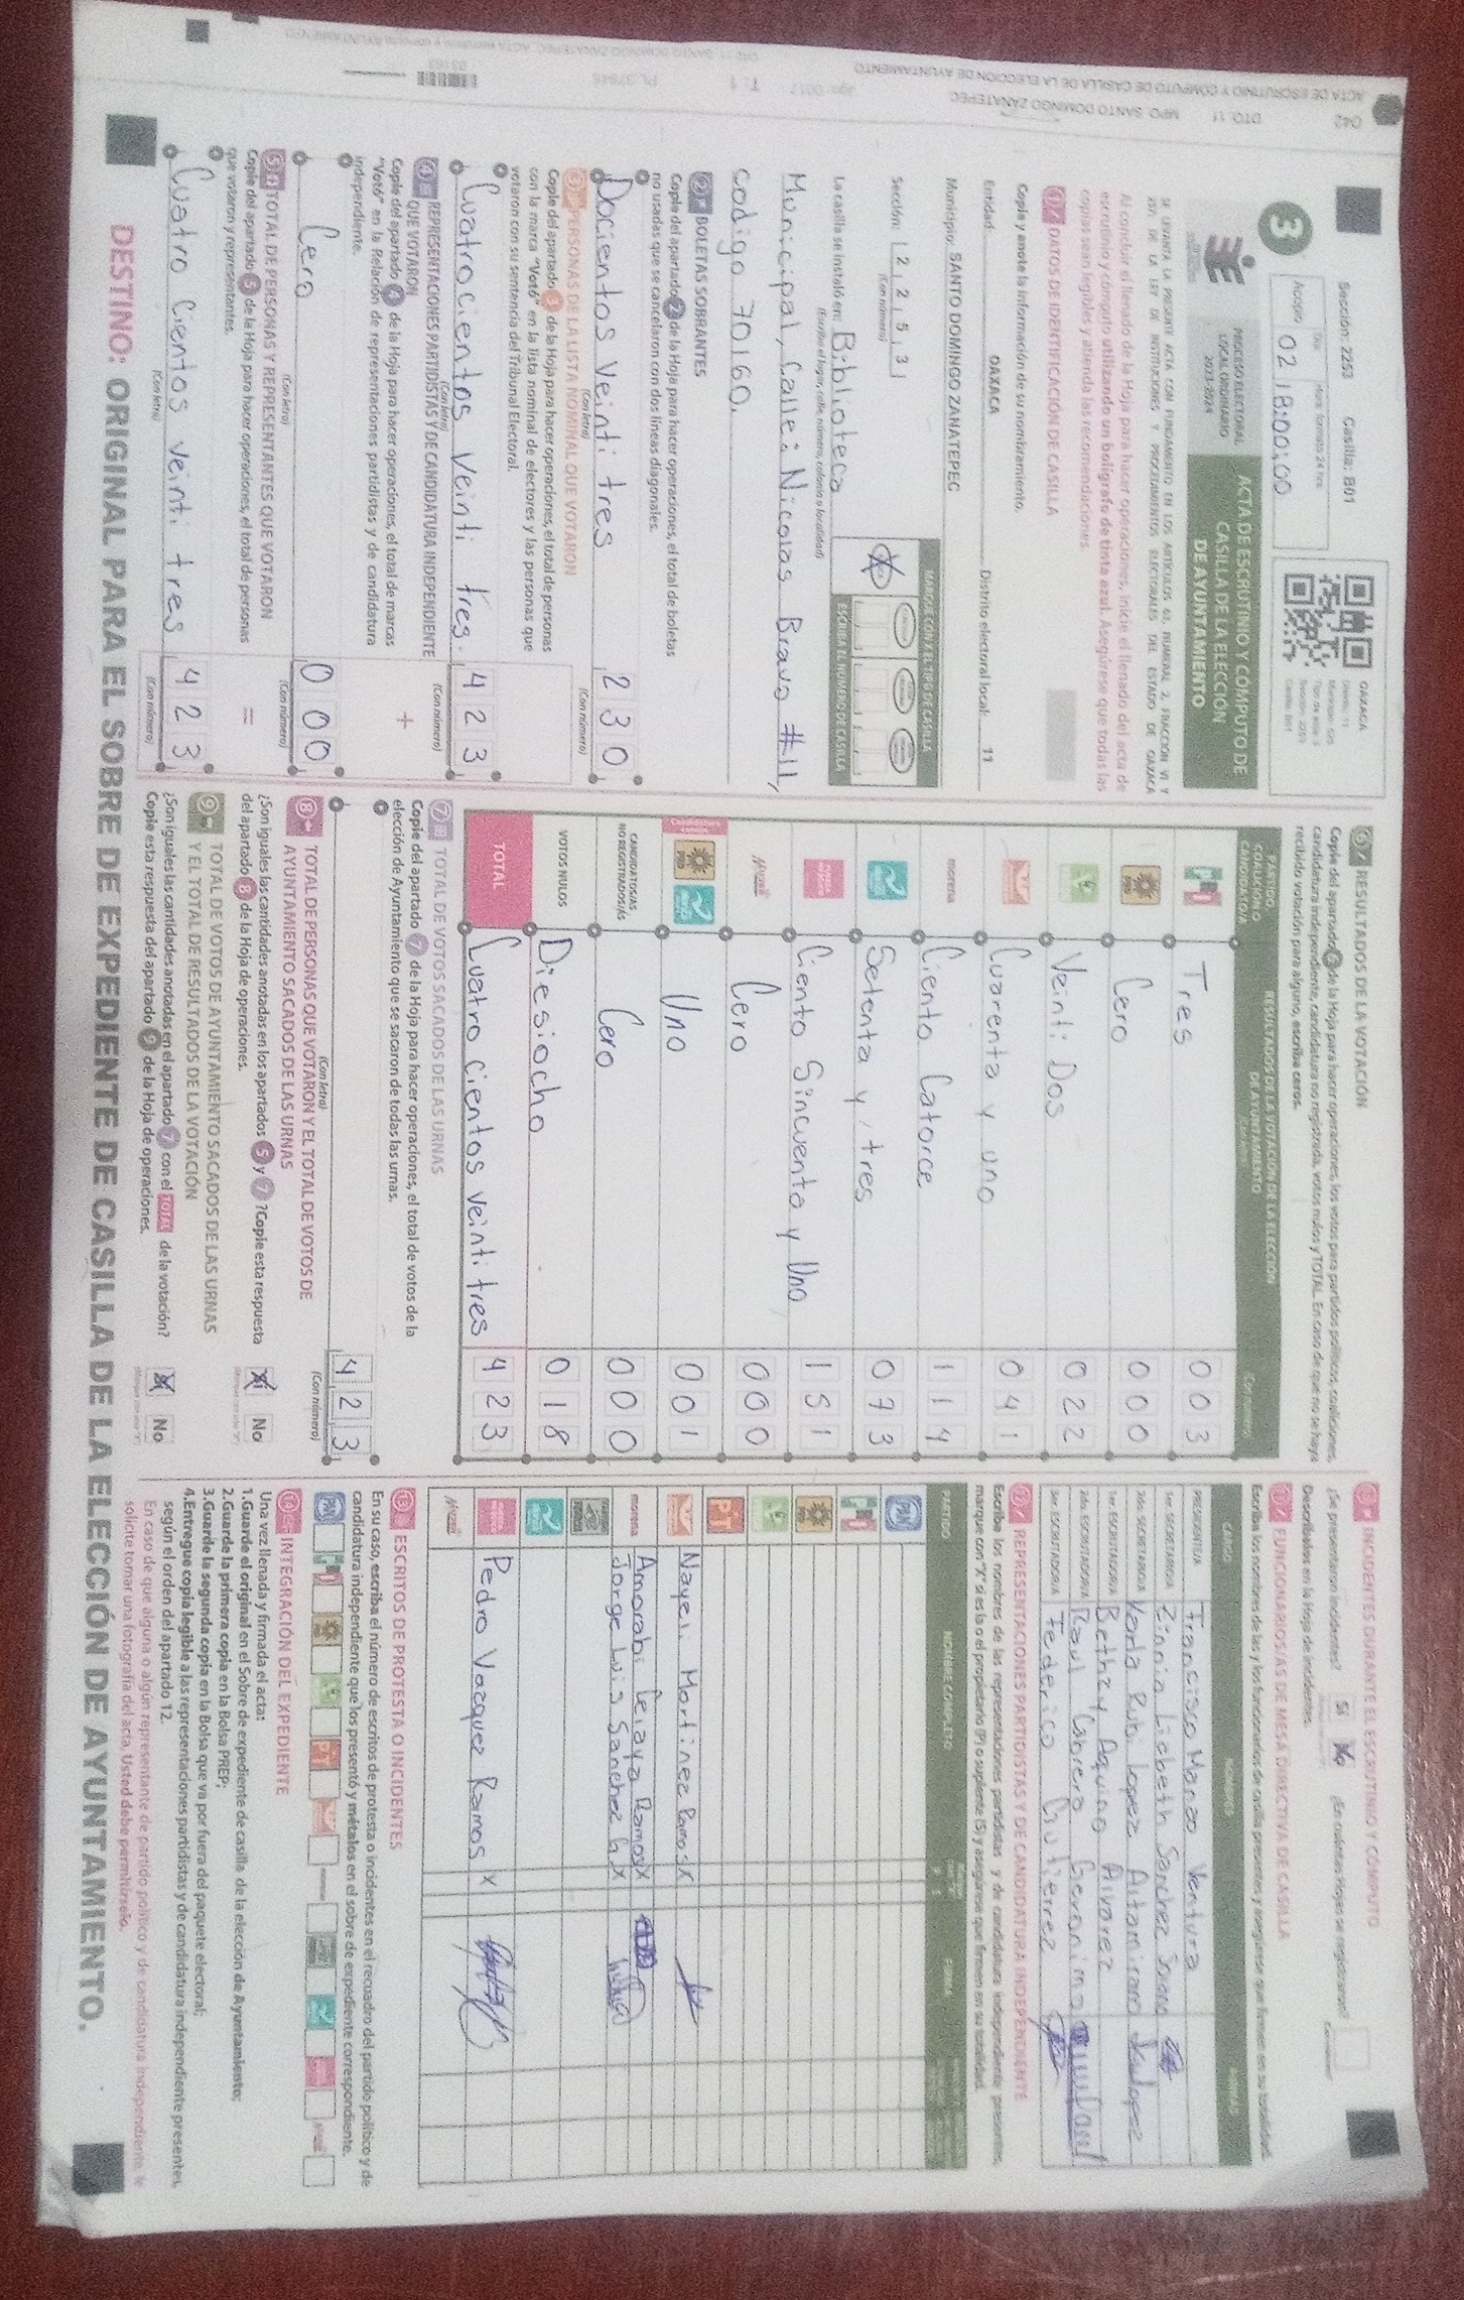 Sección: 2253 Casilla: B01
Acopio
02 18:00:00
OAXACA
3
PROCESO ELECTORAL
LOCAL ORDINARIO
2023-2024
ACTA DE ESCRUTINIO Y CÓMPUTO DE
CASILLA DE LA ELECCIÓN
DE AYUNTAMIENTO
SE LEVANTA LA PRESENTE ACTA CON FUNDAMENTO EN LOS ARTÍCULOS
DE LA LEY DE INSTITUCIONES Y PROCEDIMIENTOS ELECTORALES DEL ESTADO DE OAXACA
Al concluir el llenado de la Hoja para hacer operaciones, inicie el llenado del acta de
escrutinio y cómputo utilizando un bolígrafo de tinta azul. Asegúrese que todas las
copias sean legibles y atienda las recomendaciones.
1 DATOS DE IDENTIFICACIÓN DE CASILLA
Copie y anote la información de su nombramiento.
Entidad: OAXACA Distrito electoral local: 11
Municipio: SANTO DOMINGO ZANATEPEC
Sección: 2 2 5 3
(Con número)
MARQUE CON X EL TIPO DE CASILLA
ESCRIBA EL NÚMERO DE CASILLA
La casilla se instaló en: Biblioteca
(Escriba el lugar, calle, número, colonia o localidad)
Municipal, Calle: Nicolas Bravo #11,
codigo 70160.
2 BOLETAS SOBRANTES
Copie del apartado 2 de la Hoja para hacer operaciones, el total de boletas
no usadas que se cancelaron con dos líneas diagonales.
Docientos veinti tres 2 3 0
(Con letra) (Con número)
3 PERSONAS DE LA LISTA NOMINAL QUE VOTARON
Copie del apartado 3 de la Hoja para hacer operaciones, el total de personas
con la marca "Votó" en la lista nominal de electores y las personas que
votaron con su sentencia del Tribunal Electoral.
Cuatrocientos veinti tres. 4 2 3
(Con letra) (Con número)
4 REPRESENTACIONES PARTIDISTAS Y DE CANDIDATURA INDEPENDIENTE
QUE VOTARON
+
Copie del apartado 4 de la Hoja para hacer operaciones, el total de marcas
"Votó" en la Relación de representaciones partidistas y de candidatura
independiente.
Cero 0 0 0
(Con letra) (Con número)
5 TOTAL DE PERSONAS Y REPRESENTANTES QUE VOTARON
=
Copie del apartado 5 de la Hoja para hacer operaciones, el total de personas
que votaron y representantes.
Cuatro Cientos veinti tres 4 2 3
(Con letra) (Con número)
6 RESULTADOS DE LA VOTACIÓN
Copie del apartado 6 de la Hoja para hacer operaciones, los votos para partidos políticos, coaliciones,
candidatura independiente, candidatura no registrada, votos nulos y TOTAL. En caso de que no se haya
recibido votación para alguno, escriba ceros.
PARTIDO, COALICIÓN O CANDIDATO/A
RESULTADOS DE LA VOTACIÓN DE LA ELECCIÓN
DE AYUNTAMIENTO
Con número
PRI Tres 0 0 3
PRD Cero 0 0 0
Veinti Dos 0 2 2
Cuarenta y uno 0 4 1
morena Ciento Catorce 1 1 4
Setenta y tres 0 7 3
Ciento Sincuenta y Uno 1 5 1
Cero 0 0 0
PRD Uno 0 0 1
CANDIDATOS/AS
NO REGISTRADOS/AS
Cero 0 0 0
VOTOS NULOS Diesiocho 0 1 8
TOTAL Cuatro cientos veinti tres 4 2 3
7 TOTAL DE VOTOS SACADOS DE LAS URNAS
Copie del apartado 7 de la Hoja para hacer operaciones, el total de votos de la
elección de Ayuntamiento que se sacaron de todas las urnas.
4 2 3
(Con letra) (Con número)
8 TOTAL DE PERSONAS QUE VOTARON Y EL TOTAL DE VOTOS DE
AYUNTAMIENTO SACADOS DE LAS URNAS
¿Son iguales las cantidades anotadas en los apartados 5 y 7 ? Copie esta respuesta
del apartado 8 de la Hoja de operaciones.
Sí No
9 TOTAL DE VOTOS DE AYUNTAMIENTO SACADOS DE LAS URNAS
Y EL TOTAL DE RESULTADOS DE LA VOTACIÓN
¿Son iguales las cantidades anotadas en el apartado 7 con el TOTAL de la votación?
Copie esta respuesta del apartado 9 de la Hoja de operaciones.
Sí No
INCIDENTES DURANTE EL ESCRUTINIO Y CÓMPUTO
¿Se presentaron incidentes? Sí No ¿En cuántas Hojas se registraron?
Descríbalos en la Hoja de incidentes.
FUNCIONARIOS/AS DE MESA DIRECTIVA DE CASILLA
Escriba los nombres de las y los funcionarios de casilla presentes y asegúrese que firmen en su totalidad.
CARGO NOMBRES FIRMAS
PRESIDENTE/A Francisco Manzo Ventura
1er. SECRETARIO/A Zinnia Lizbeth Sanchez
2do. SECRETARIO/A Karla Rubi Lopez Altamirano
1er. ESCRUTADOR/A Bethzy Aquino Alvarez
2do. ESCRUTADOR/A Raul Cabrera Geronimo
3er. ESCRUTADOR/A Federico Gutierrez
12 REPRESENTACIONES PARTIDISTAS Y DE CANDIDATURA INDEPENDIENTE
Escriba los nombres de las representaciones partidistas y de candidatura independiente presentes,
marque con "X" si es la o el propietario (P) o suplente (S) y asegúrese que firmen en su totalidad.
PARTIDO NOMBRE COMPLETO FIRMA
PAN
PRI
PRD
PT
Nayeli Martinez Ramos X
morena Amorabi Celaya Ramos X
Jorge Luis Sanchez h X
Pedro Vazquez Ramos X
13 ESCRITOS DE PROTESTA O INCIDENTES
En su caso, escriba el número de escritos de protesta o incidentes en el recuadro del partido político y de
candidatura independiente que los presentó y métalos en el sobre de expediente correspondiente.
14 INTEGRACIÓN DEL EXPEDIENTE
Una vez llenada y firmada el acta:
1.Guarde el original en el Sobre de expediente de casilla de la elección de Ayuntamiento;
2.Guarde la primera copia en la Bolsa PREP;
3.Guarde la segunda copia en la Bolsa que va por fuera del paquete electoral;
4.Entregue copia legible a las representaciones partidistas y de candidatura independiente presentes,
según el orden del apartado 12.
En caso de que alguna o algún representante de partido político y de candidatura independiente le
solicite tomar una fotografía del acta. Usted debe permitírselo.
DESTINO: ORIGINAL PARA EL SOBRE DE EXPEDIENTE DE CASILLA DE LA ELECCIÓN DE AYUNTAMIENTO.
ACTA DE ESCRUTINIO Y CÓMPUTO DE CASILLA DE LA ELECCIÓN DE AYUNTAMIENTO
042 DTO. 11 MPO. SANTO DOMINGO ZANATEPEC